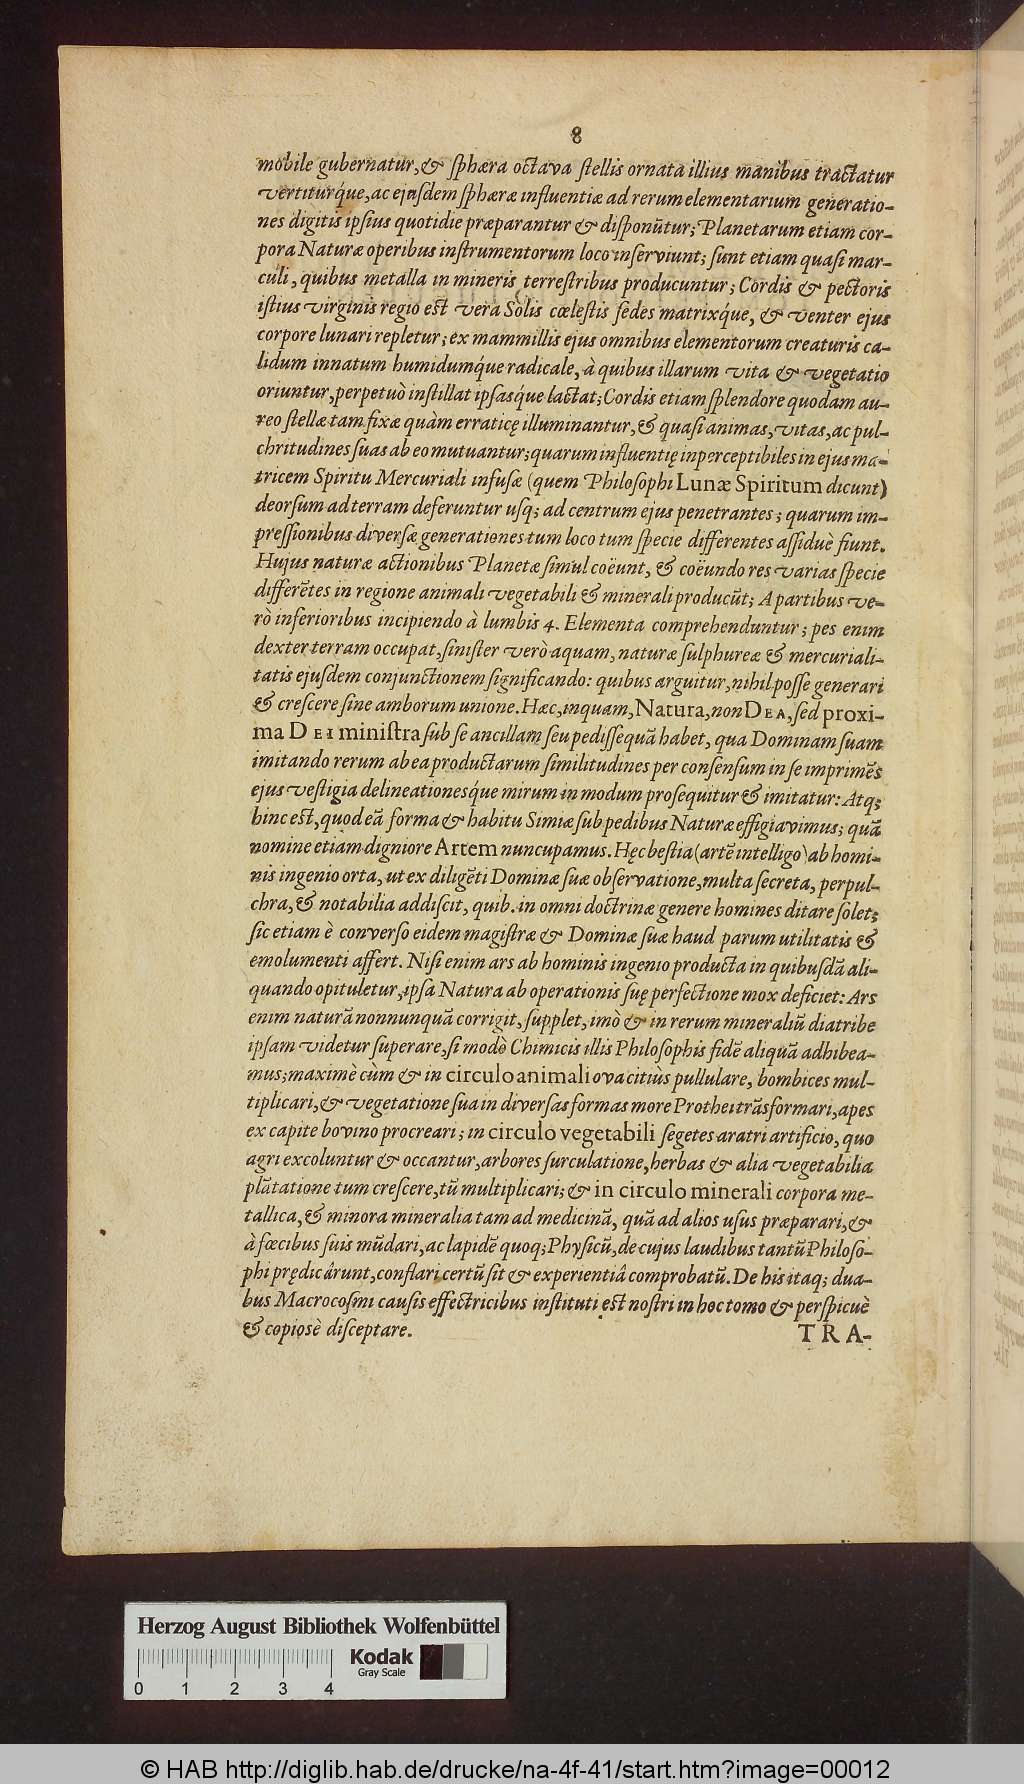 8
mobile gubernatur, & sphæra octava stellis ornata illius manibus tractatur
vertiturq́ue, ac ejusdem sphæræ influentiæ ad rerum elementarium generatio-
nes digitis ipsius quotidie præparantur & disponūtur; Planetarum etiam cor-
pora Naturæ operibus instrumentorum loco inserviunt; sunt etiam quasi mar-
culi, quibus metalla in mineris terrestribus producuntur; Cordis & pectoris
istius virginis regio est vera Solis cœlestis sedes matrixq́ue, & venter ejus
corpore lunari repletur; ex mammillis ejus omnibus elementorum creaturis ca-
lidum innatum humidumq́ue radicale, à quibus illarum vita & vegetatio
oriuntur, perpetuò instillat ipsasq́ue lactat; Cordis etiam splendore quodam au-
reo stellæ tam fixæ quàm erraticę illuminantur, & quasi animas, vitas, ac pul-
chritudines suas ab eo mutuantur; quarum influentię inperceptibiles in ejus ma-
tricem Spiritu Mercuriali infusæ (quem Philosophi Lunæ Spiritum dicunt)
deorsum ad terram deferuntur usq; ad centrum ejus penetrantes; quarum im-
pressionibus diversæ generationes tum loco tum specie differentes assiduè fiunt.
Hujus naturæ actionibus Planetæ simul coëunt, & coëundo res varias specie
differētes in regione animali vegetabili & minerali producūt; A partibus ve-
rò inferioribus incipiendo à lumbis 4. Elementa comprehenduntur; pes enim
dexter terram occupat, sinister verò aquam, naturæ sulphureæ & mercuriali-
tatis ejusdem conjunctionem significando: quibus arguitur, nihil posse generari
& crescere sine amborum unione. Hæc, inquam, Natura, non DEA, sed proxi-
ma DEI ministra sub se ancillam seu pedissequā habet, qua Dominam suam
imitando rerum ab ea productarum similitudines per consensum in se imprimēs
ejus vestigia delineationesq́ue mirum in modum prosequitur & imitatur: Atq;
hinc est, quod eā forma & habitu Simiæ sub pedibus Naturæ effigiavimus; quā
nomine etiam digniore Artem nuncupamus. Hęc bestia (artē intelligo) ab homi-
nis ingenio orta, ut ex diligēti Dominæ suæ observatione, multa secreta, perpul-
chra, & notabilia addiscit, quib. in omni doctrinæ genere homines ditare solet;
sic etiam è converso eidem magistræ & Dominæ suæ haud parum utilitatis &
emolumenti affert. Nisi enim ars ab hominis ingenio producta in quibusdā ali-
quando opituletur, ipsa Natura ab operationis suę perfectione mox deficiet: Ars
enim naturā nonnunquā corrigit, supplet, imò & in rerum mineraliū diatribe
ipsam videtur superare, si modò Chimicis illis Philosophis fidē aliquā adhibea-
mus; maximè cùm & in circulo animali ova citiùs pullulare, bombices mul-
tiplicari, & vegetatione sua in diversas formas more Prothei trāsformari, apes
ex capite bovino procreari; in circulo vegetabili segetes aratri artificio, quo
agri excoluntur & occantur, arbores surculatione, herbas & alia vegetabilia
plātatione tum crescere, tū multiplicari; & in circulo minerali corpora me-
tallica, & minora mineralia tam ad medicinā, quā ad alios usus præparari, &
à fœcibus suis mūdari, ac lapidē quoq; Physicū, de cujus laudibus tantū Philoso-
phi prędicârunt, conflari certū sit & experientiâ comprobatū. De his itaq; dua-
bus Macrocosmi causis effectricibus instituti est nostri in hoc tomo & perspicuè
& copiosè disceptare.
TRA-
Herzog August Bibliothek Wolfenbüttel
Kodak
Gray Scale
0 1 2 3 4
© HAB http://diglib.hab.de/drucke/na-4f-41/start.htm?image=00012